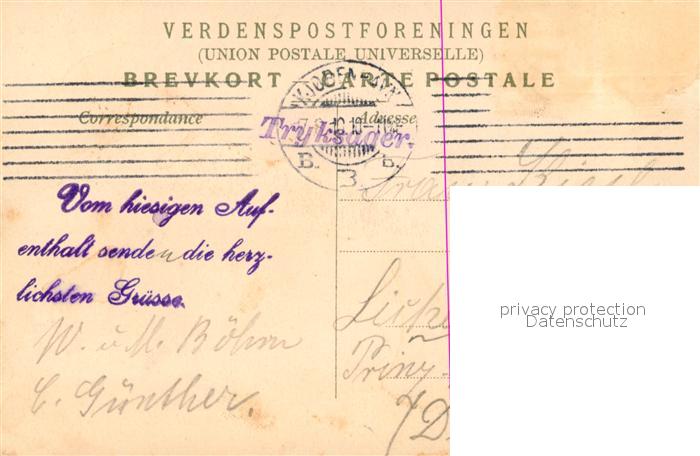 VERDENSPOSTFORENINGEN
(UNION POSTALE UNIVERSELLE)
BREVKORT CARTE POSTALE
Correspondance
Adresse
Tryksager.
B. 3 B.
Vom hiesigen Auf-
enthalt senden die herz-
lichsten Grüsse.
W. u. M. Böhm
C. Günther.
Prinz-
privacy protection
Datenschutz